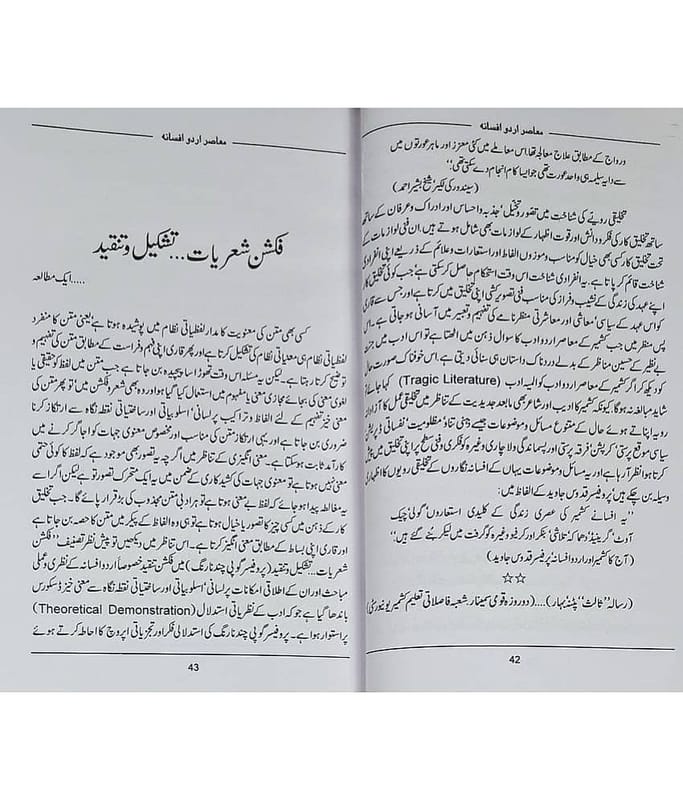 معاصر اردو افسانہ
ورواج کے مطابق علاج معالجہ تھا۔ اس معاملے میں کئی معزز اور ماہر عورتوں میں
سے دایہ سلیمہ ہی واحد عورت تھی جو ایسا کام انجام دے سکتی تھی۔''
(سیندور کی لکیر شیخ بشیر احمد)
تخلیقی رویے کی شناخت میں تصور و تخیل' جذبہ و احساس اور ادراک و عرفان کے ساتھ
ساتھ تخلیق کار کی فکر و دانش اور قوت اظہار کے لوازمات بھی شامل ہوتے ہیں۔ ان فنی لوازمات کے
تحت تخلیق کار کسی بھی خیال کو مناسب و موزوں الفاظ اور استعارات و علائم کے ذریعے اپنی انفرادی
شناخت قائم کر پاتا ہے۔ یہ انفرادی شناخت اس وقت استحکام حاصل کر سکتی ہے' جب کوئی تخلیق کار
اپنے عہد کی زندگی کے نشیب و فراز کی مناسب فنی تصویر کشی اپنی تخلیق میں کرتا ہے اور جس سے قاری
کو اس عہد کے سیاسی' معاشی اور معاشرتی منظرنامے کی تفہیم و تعبیر میں آسانی ہو جاتی ہے۔ اس
پس منظر میں جب کشمیر کے معاصر اردو ادب کا سوال ذہن میں اٹھتا ہے تو اس ادب میں جنت
بے نظیر کے حسین مناظر کے بدلے دردناک داستان ہی سنائی دیتی ہے۔ اس خوفناک صورت حال
کو دیکھ کر اگر کشمیر کے معاصر اردو ادب کو المیہ ادب (Tragic Literature) کہا جائے تو
شاید مبالغہ نہ ہوگا۔ کیونکہ کشمیر کا ادیب اور شاعر بھی مابعد جدیدیت کے تناظر میں تخلیقی عمل کا آزادانہ
رویہ اپناتے ہوئے حال کے متنوع مسائل و موضوعات جیسے ذہنی تناؤ' مظلومیت' نفسانی ڈپریشن'
سیاسی موقع پرستی' کرپشن' فرقہ پرستی اور پسماندگی و لاچاری وغیرہ کو فکری و فنی سطح پر اپنی تخلیق میں پیش
کرتا ہوا نظر آرہا ہے اور یہ مسائل و موضوعات یہاں کے افسانہ نگاروں کے تخلیقی رویوں کا اظہاری
وسیلہ بن چکے ہیں' پروفیسر قدوس جاوید کے الفاظ میں:۔
''یہ افسانے کشمیر کی عصری زندگی کے کلیدی استعاروں' گولی' چیک
آوٹ' گرینیڈ' دھماکہ' تلاشی' بنکر اور کرفیو وغیرہ کو گرفت میں لیکر بنے گئے ہیں''
(آج کا کشمیر اور اردو افسانہ' پروفیسر قدوس جاوید)
☆☆
(رسالہ ''ثالث'' پٹنہ' بہار)....(دو روزہ قومی سمینار' شعبہ فاصلاتی تعلیم کشمیر یونیورسٹی)
42
معاصر اردو افسانہ
فکشن شعریات...تشکیل و تنقید
.....ایک مطالعہ
کسی بھی متن کی معنویت کا مدار لفظیاتی نظام میں پوشیدہ ہوتا ہے یعنی متن کا منفرد
لفظیاتی نظام ہی معنیاتی نظام کی تشکیل کرتا ہے اور پھر قاری اپنی فہم و فراست کے مطابق متن کی تفہیم و
توضیح کرتا رہتا ہے۔ لیکن یہ مسئلہ اس وقت تھوڑا سا پیچیدہ بن جاتا ہے جب متن میں لفظ کو حقیقی یا
لغوی معنی کی بجائے مجازی معنی یا مفہوم میں استعمال کیا گیا ہو اور وہ بھی شعر و فکشن میں' تو پھر متن کی
معنی خیز تفہیم کے لئے الفاظ و تراکیب پر لسانی' اسلوبیاتی اور ساختیاتی نقطہ نگاہ سے ارتکاز کرنا
ضروری بن جاتا ہے اور یہی ارتکاز متن کی مناسب اور مخصوص معنوی جہات کو اجاگر کرنے میں
کارآمد ثابت ہو سکتا ہے۔ معنی انگیزی کے تناظر میں اگرچہ یہ تصور بھی موجود ہے کہ لفظ کا کوئی حتمی
معنی نہیں ہوتا ہے تو معنوی جہات کی کشید کاری کے ضمن میں یہ ایک متحرک تصور تو ہے لیکن اگر اسے
یہ مغالطہ پیدا ہو جائے کہ لفظ بے معنی ہوتا ہے تو ہر ادبی متن مجذوب کی بڑ قرار پائے گا۔ جب تخلیق
کار کے ذہن میں کسی چیز کا تصور یا خیال ہوتا ہے تو ہی وہ الفاظ کے پیکر میں متن کا حصہ بن جاتا ہے
اور قاری اپنی بساط کے مطابق معنی انگیز کرتا ہے۔ اس تناظر میں دیکھیں تو پیش نظر تصنیف ''فکشن
شعریات...تشکیل و تنقید (پروفیسر گوپی چند نارنگ) میں فکشن تنقید خصوصاً اردو افسانہ کے نظری و عملی
مباحث اور ان کے اطلاقی امکانات پر لسانی' اسلوبیاتی اور ساختیاتی نقطہ نگاہ سے معنی خیز ڈسکورس
باندھا گیا ہے جو کہ ادب کے نظریاتی استدلال (Theoretical Demonstration)
پر استوار ہوا ہے۔ پروفیسر گوپی چند نارنگ کی استدلالی فکر اور تجزیاتی اپروچ کا احاطہ کرتے ہوئے
43